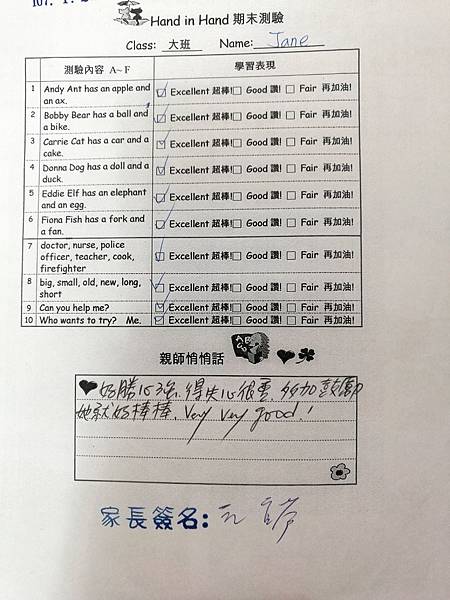 107. 1. 2
Hand in Hand 期末測驗
Class: 大班 Name: Jane
測驗內容 A~F 學習表現
1 Andy Ant has an apple and an ax. Excellent 超棒! Good 讚! Fair 再加油!
2 Bobby Bear has a ball and a bike. Excellent 超棒! Good 讚! Fair 再加油!
3 Carrie Cat has a car and a cake. Excellent 超棒! Good 讚! Fair 再加油!
4 Donna Dog has a doll and a duck. Excellent 超棒! Good 讚! Fair 再加油!
5 Eddie Elf has an elephant and an egg. Excellent 超棒! Good 讚! Fair 再加油!
6 Fiona Fish has a fork and a fan. Excellent 超棒! Good 讚! Fair 再加油!
7 doctor, nurse, police officer, teacher, cook, firefighter Excellent 超棒! Good 讚! Fair 再加油!
8 big, small, old, new, long, short Excellent 超棒! Good 讚! Fair 再加油!
9 Can you help me? Excellent 超棒! Good 讚! Fair 再加油!
10 Who wants to try? Me. Excellent 超棒! Good 讚! Fair 再加油!
親師悄悄話
好勝心強,得失心很重,多加鼓勵
她就好棒棒, Very very good!
家長簽名: